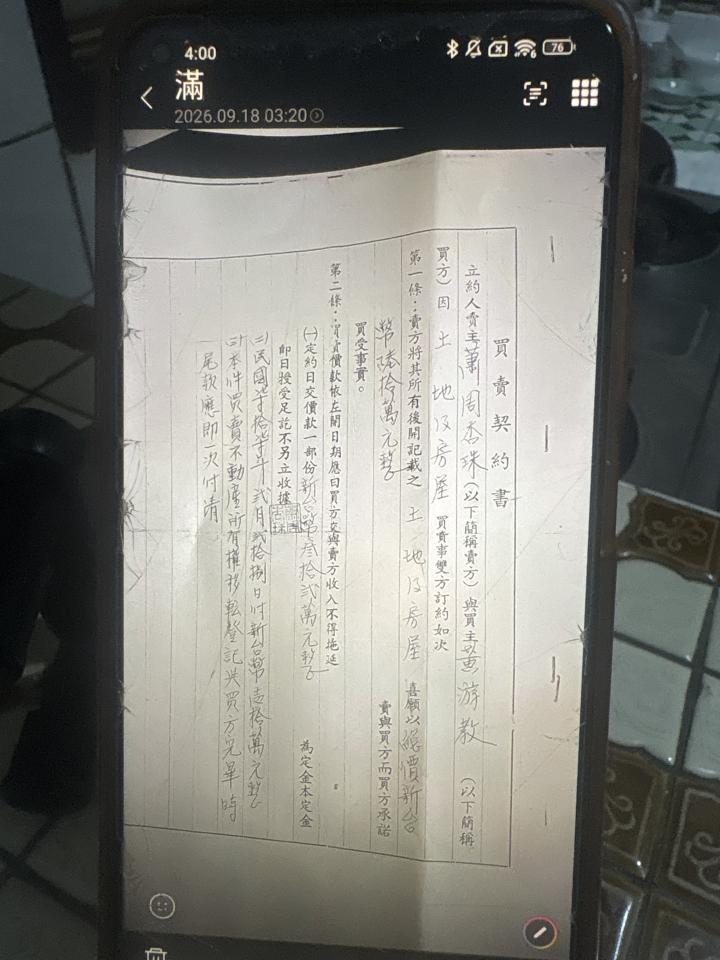 4:00
76
滿
2026.09.18 03:20
買賣契約書
立約人賣主蕭周杏珠(以下簡稱賣方)與買主葉游教(以下簡稱
買方)因土地及房屋買賣事雙方訂約如次
第一條:賣方將其所有後開記載之土地及房屋喜願以總價新台
幣陸拾萬元整賣與買方而買方承諾
買受事實。
第二條:買賣價款依左開日期應由買方交與賣方收入不得拖延
(一)定約日交價款一部份新台幣叁拾貳萬元整為定金本定金
即日授受足訖不另立收據
(二)民國柒拾柒年貳月貳拾捌日付新台幣壹拾萬元整
(三)本件買賣不動產所有權移転登記與買方完畢時
尾款應即一次付清